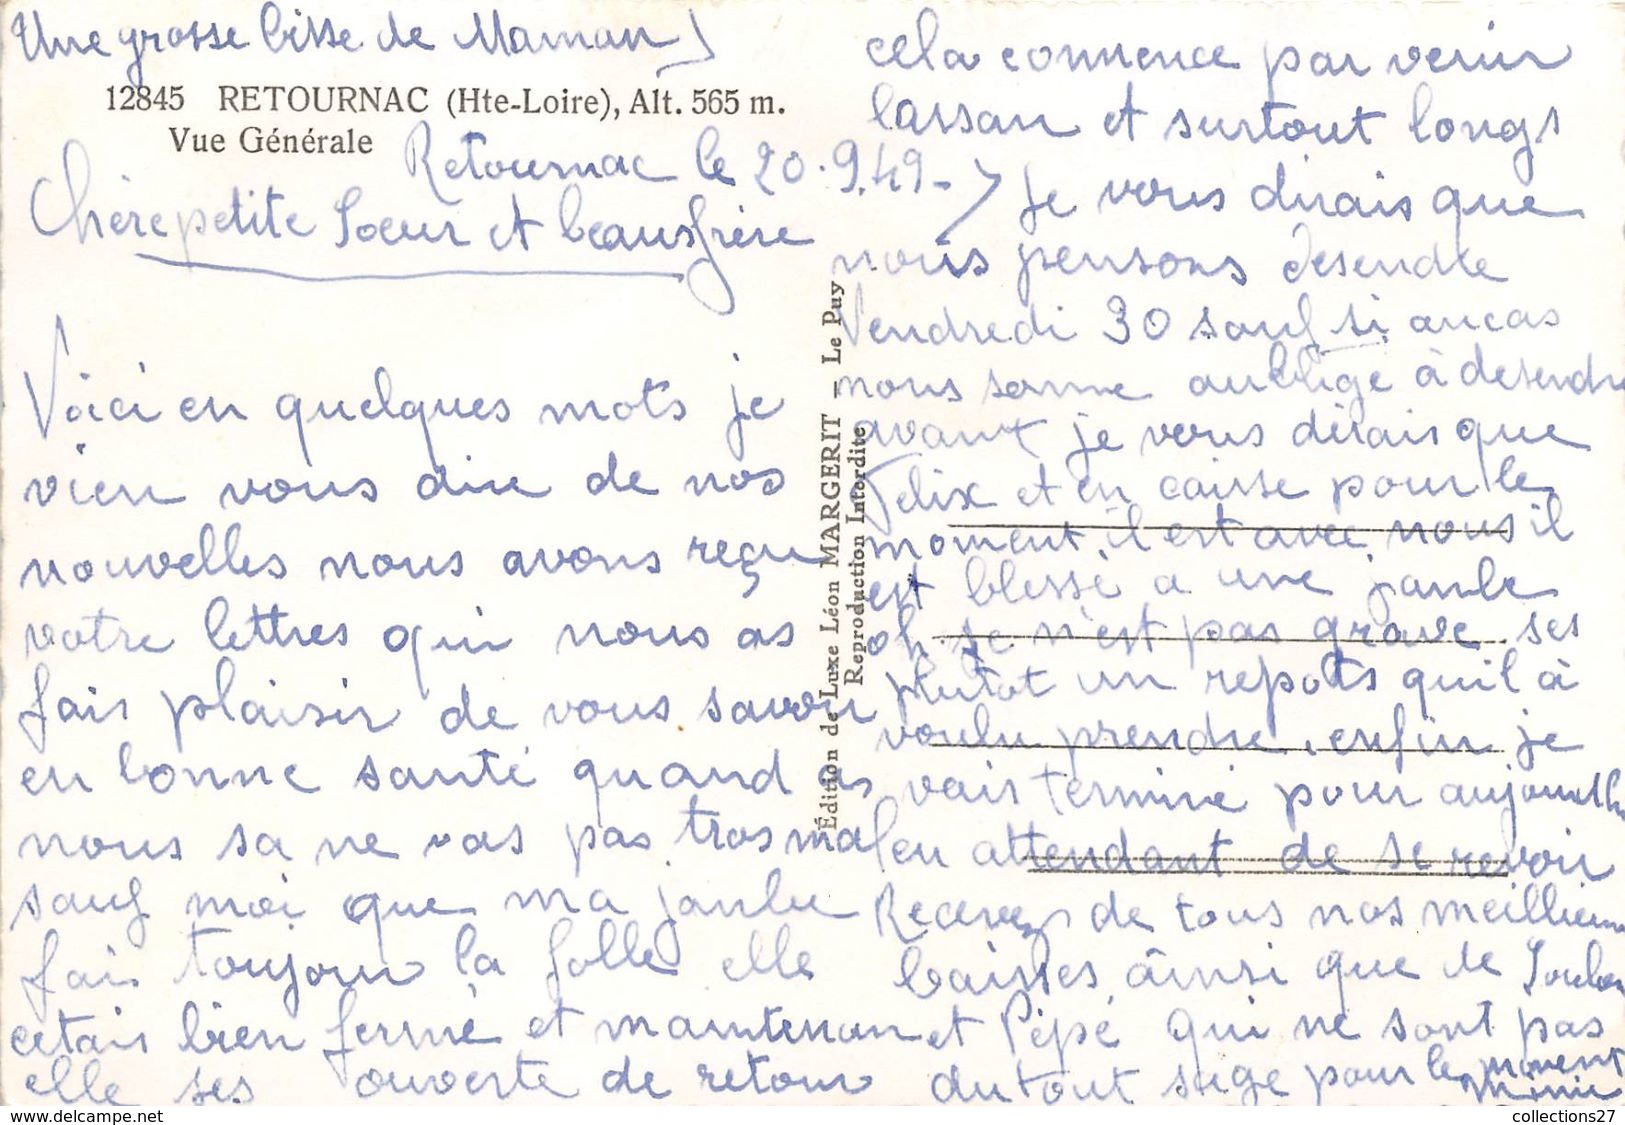 Une grosse bisse de Maman
12845 RETOURNAC (Hte-Loire), Alt. 565 m.
Vue Générale
Retournac le 20.9.49-
Chère petite Soeur et beausfrère
Voici en quelques mots je
vien vous dire de nos
nouvelles nous avons reçu
votre lettres qui nous as
fais plaisir de vous savoir
en bonne santé quand as
nous sa ne vas pas tros mal
sauf moi que ma janbe
fais toujour la folle elle
cetais bien fermé et maintenan
elle ses ouverte de retour
Édition de Luxe Léon MARGERIT – Le Puy
Reproduction Interdite
cela commence par venir
lassan et surtout longs
je vous dirais que
nous pensons desendre
Vendredi 30 sauf si aucas
nous somme aublige à desendre
avant je vous dirais que
Felix et en caisse pour le
moment, il est avec nous il
est blessé a une janbe
oh se n'est pas grave ses
plutot un repots quil à
voulu prendre, enfin je
vais terminé pour aujourdhu
en attendant de se revoir
Recevez de tous nos meillieur
baisses, ainsi que de
et Pépé qui ne sont pas
du tout sage pour le moment
Mimie
collections27